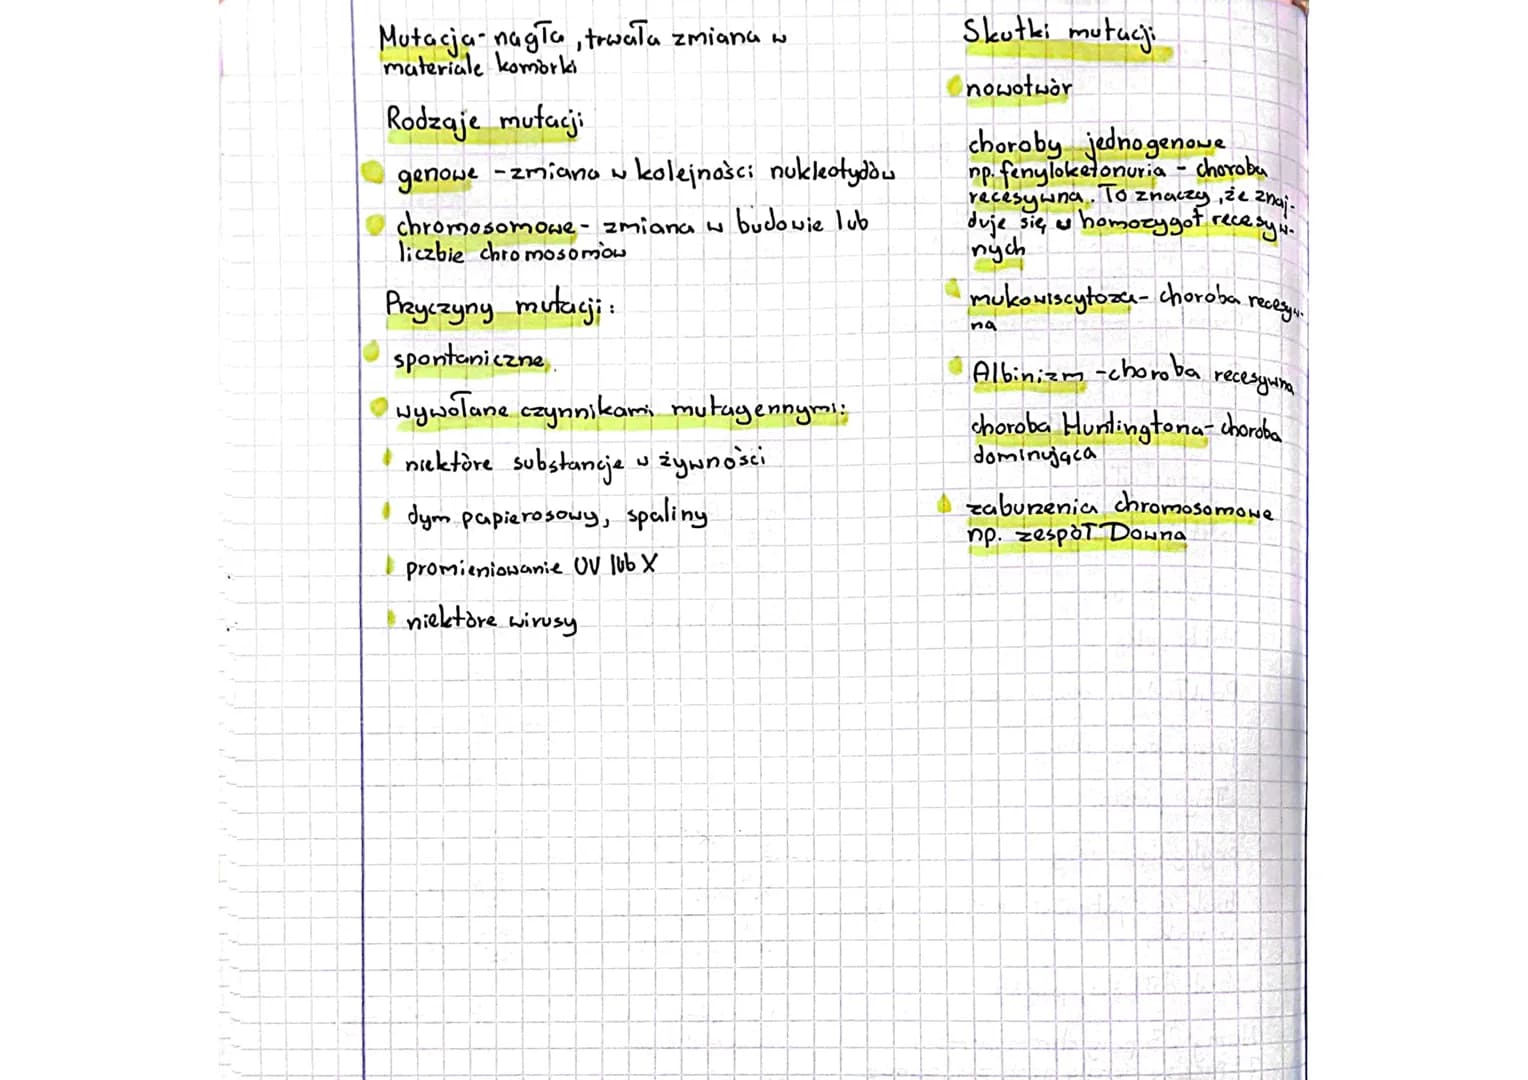 Mutacja - nagła, trwała zmiana w
materiale komórki
Rodzaje mutacji
genowe - zmiana w kolejności nukleotydów
chromosomowe - zmiana w budowie lub
liczbie chromosomów
Przyczyny mutacji:
spontaniczne
wywołane czynnikami mutagennymi:
niektóre substancje w żywności
dym papierosowy, spaliny
promieniowanie UV lub X
niektóre wirusy
Skutki mutacji
nowotwór
choroby jednogenowe
np. fenyloketonuria - choroba
recesywna. To znaczy, że znaj-
duje się u homozygot recesyw-
nych
mukowiscytoza - choroba recesyw-
na
Albinizm - choroba recesywna
choroba Huntingtona - choroba
dominująca
zaburzenia chromosomowe
np. zespół Downa